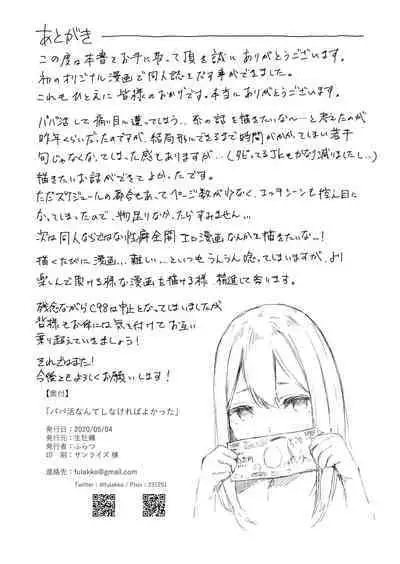 あとがき
この度は本書をお手に取って頂き誠にありがとうございます。
初のオリジナル漫画で同人誌をだす事ができました。
これもひとえに皆様のおかげです。本当にありがとうございます。
パパ活して痛い目に遭ってしまう、系の話を描きたいな〜と考えたのが
昨年くらいだったのですが、結局形にできるまで時間がかかってしまい若干
旬じゃなくなってしまった感もありますが…(タピってるJKもかなり減りましたし…)
描きたいお話ができてよかったです。
ただスケジュールの都合もあってページ数が少なく、エッチシーンも控え目に
なってしまったので、物足りなかったらすみません…
次は同人ならではな性癖全開エロ漫画なんかも描きたいな…!
描くたびに漫画…難しい…といつもうんうん唸ってしまいますが、より
楽しんで頂ける様な漫画を描ける様、精進して参ります。
残念ながらC98は中止となってしまいましたが
皆様もお体には気を付けてお互い
乗り越えていきましょう!
それではまた!
今後ともよろしくお願いします!
【奥付】
「パパ活なんてしなければよかった」
発行日:2020/05/04
発行元:生牡蠣
発行者:ふらつ
印 刷:サンライズ 様
連絡先:fulakko@gmail.com
Twitter:@fulakko / Pixiv: